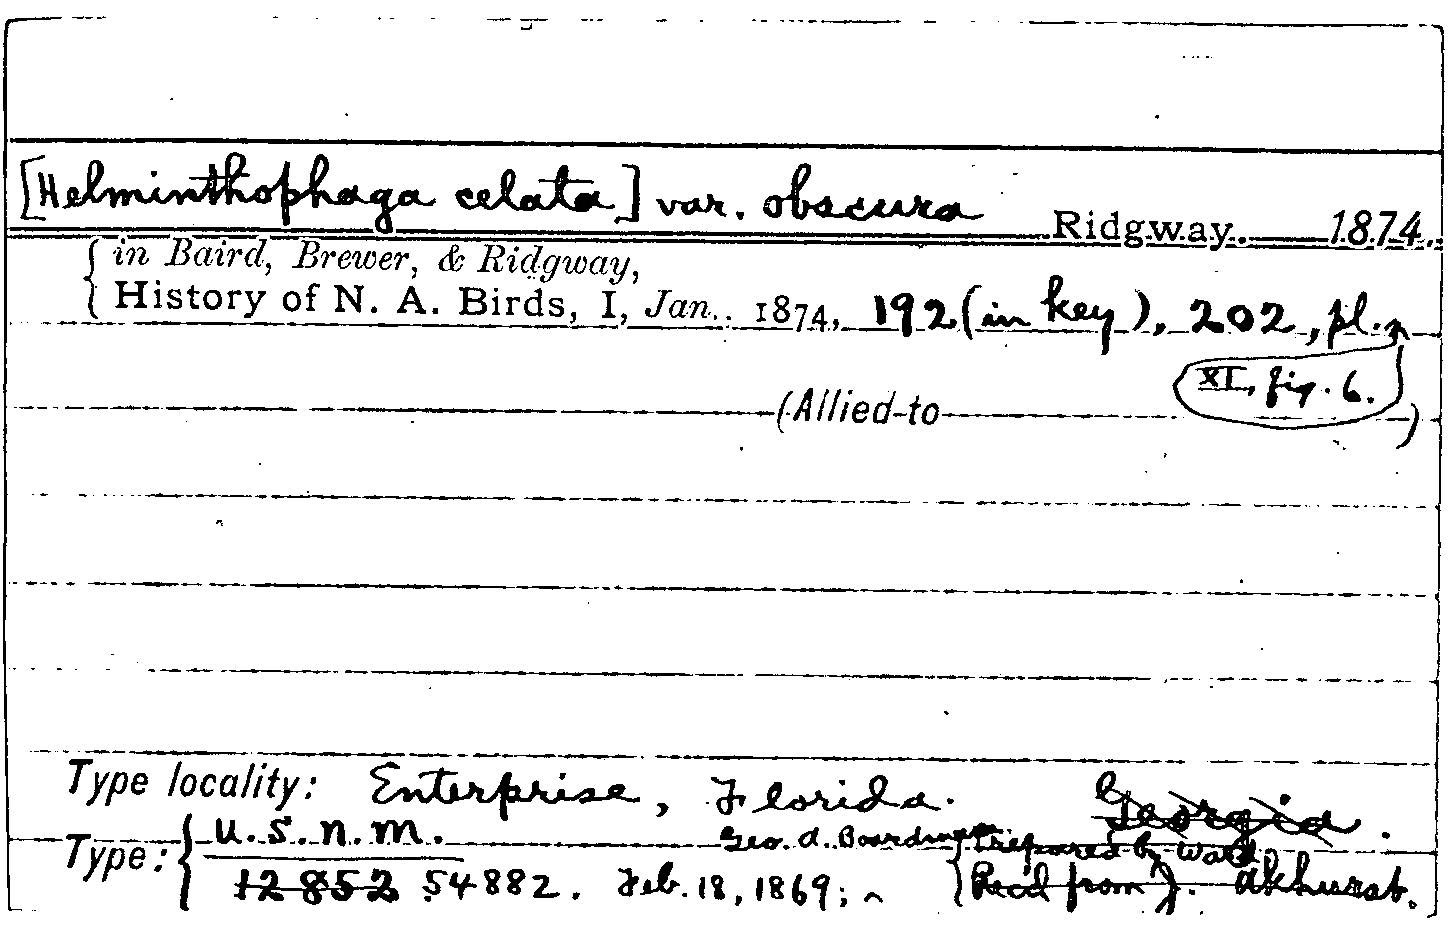 [Helminthophaga celata] var. obscura Ridgway. 1874.
in Baird, Brewer, & Ridgway,
History of N. A. Birds, I, Jan. 1874, 192 (in key), 202, pl.
XI, fig. 6.
(Allied to )
Type locality: Enterprise, Florida. Georgia.
Type: U.S.N.M. Geo. A. Boardman. Prepared by Ward,
12852 54882. Feb. 18, 1869; Rec'd from J. Akhurst.